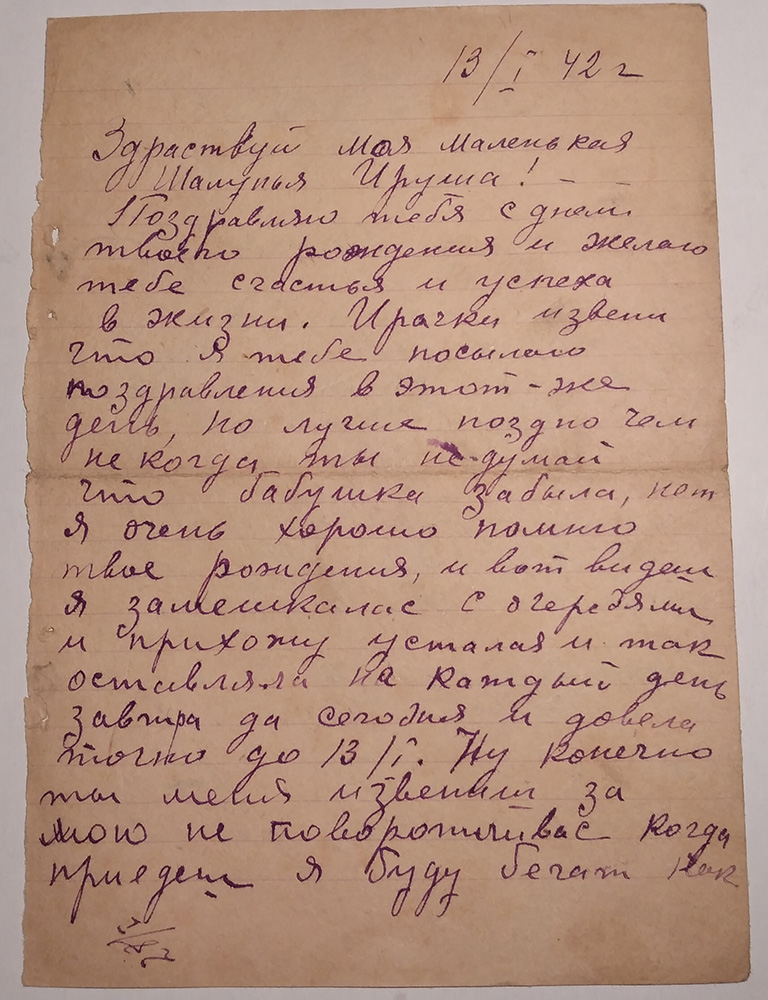 13/I 42 г
Здраствуй моя маленькая
Шалунья Ируша! - -
Поздравляю тебя с днем
твоего рождения и желаю
тебе счастья и успеха
в жизни. Ирачка извени
что я тебе посылаю
поздравления в этот-же
день, но лучше поздно чем
не когда ты не думай
что бабушка забыла, нет
я очень хорошо помню
твое рождения, и вот видеш
я замешкалас с очередями
и прихожу усталая и так
оставляла на каждый день
завтра да сегодня и довела
точно до 13/I. Ну конечно
ты меня извениш за
мою не поворотливас когда
приедеш я буду бегат как